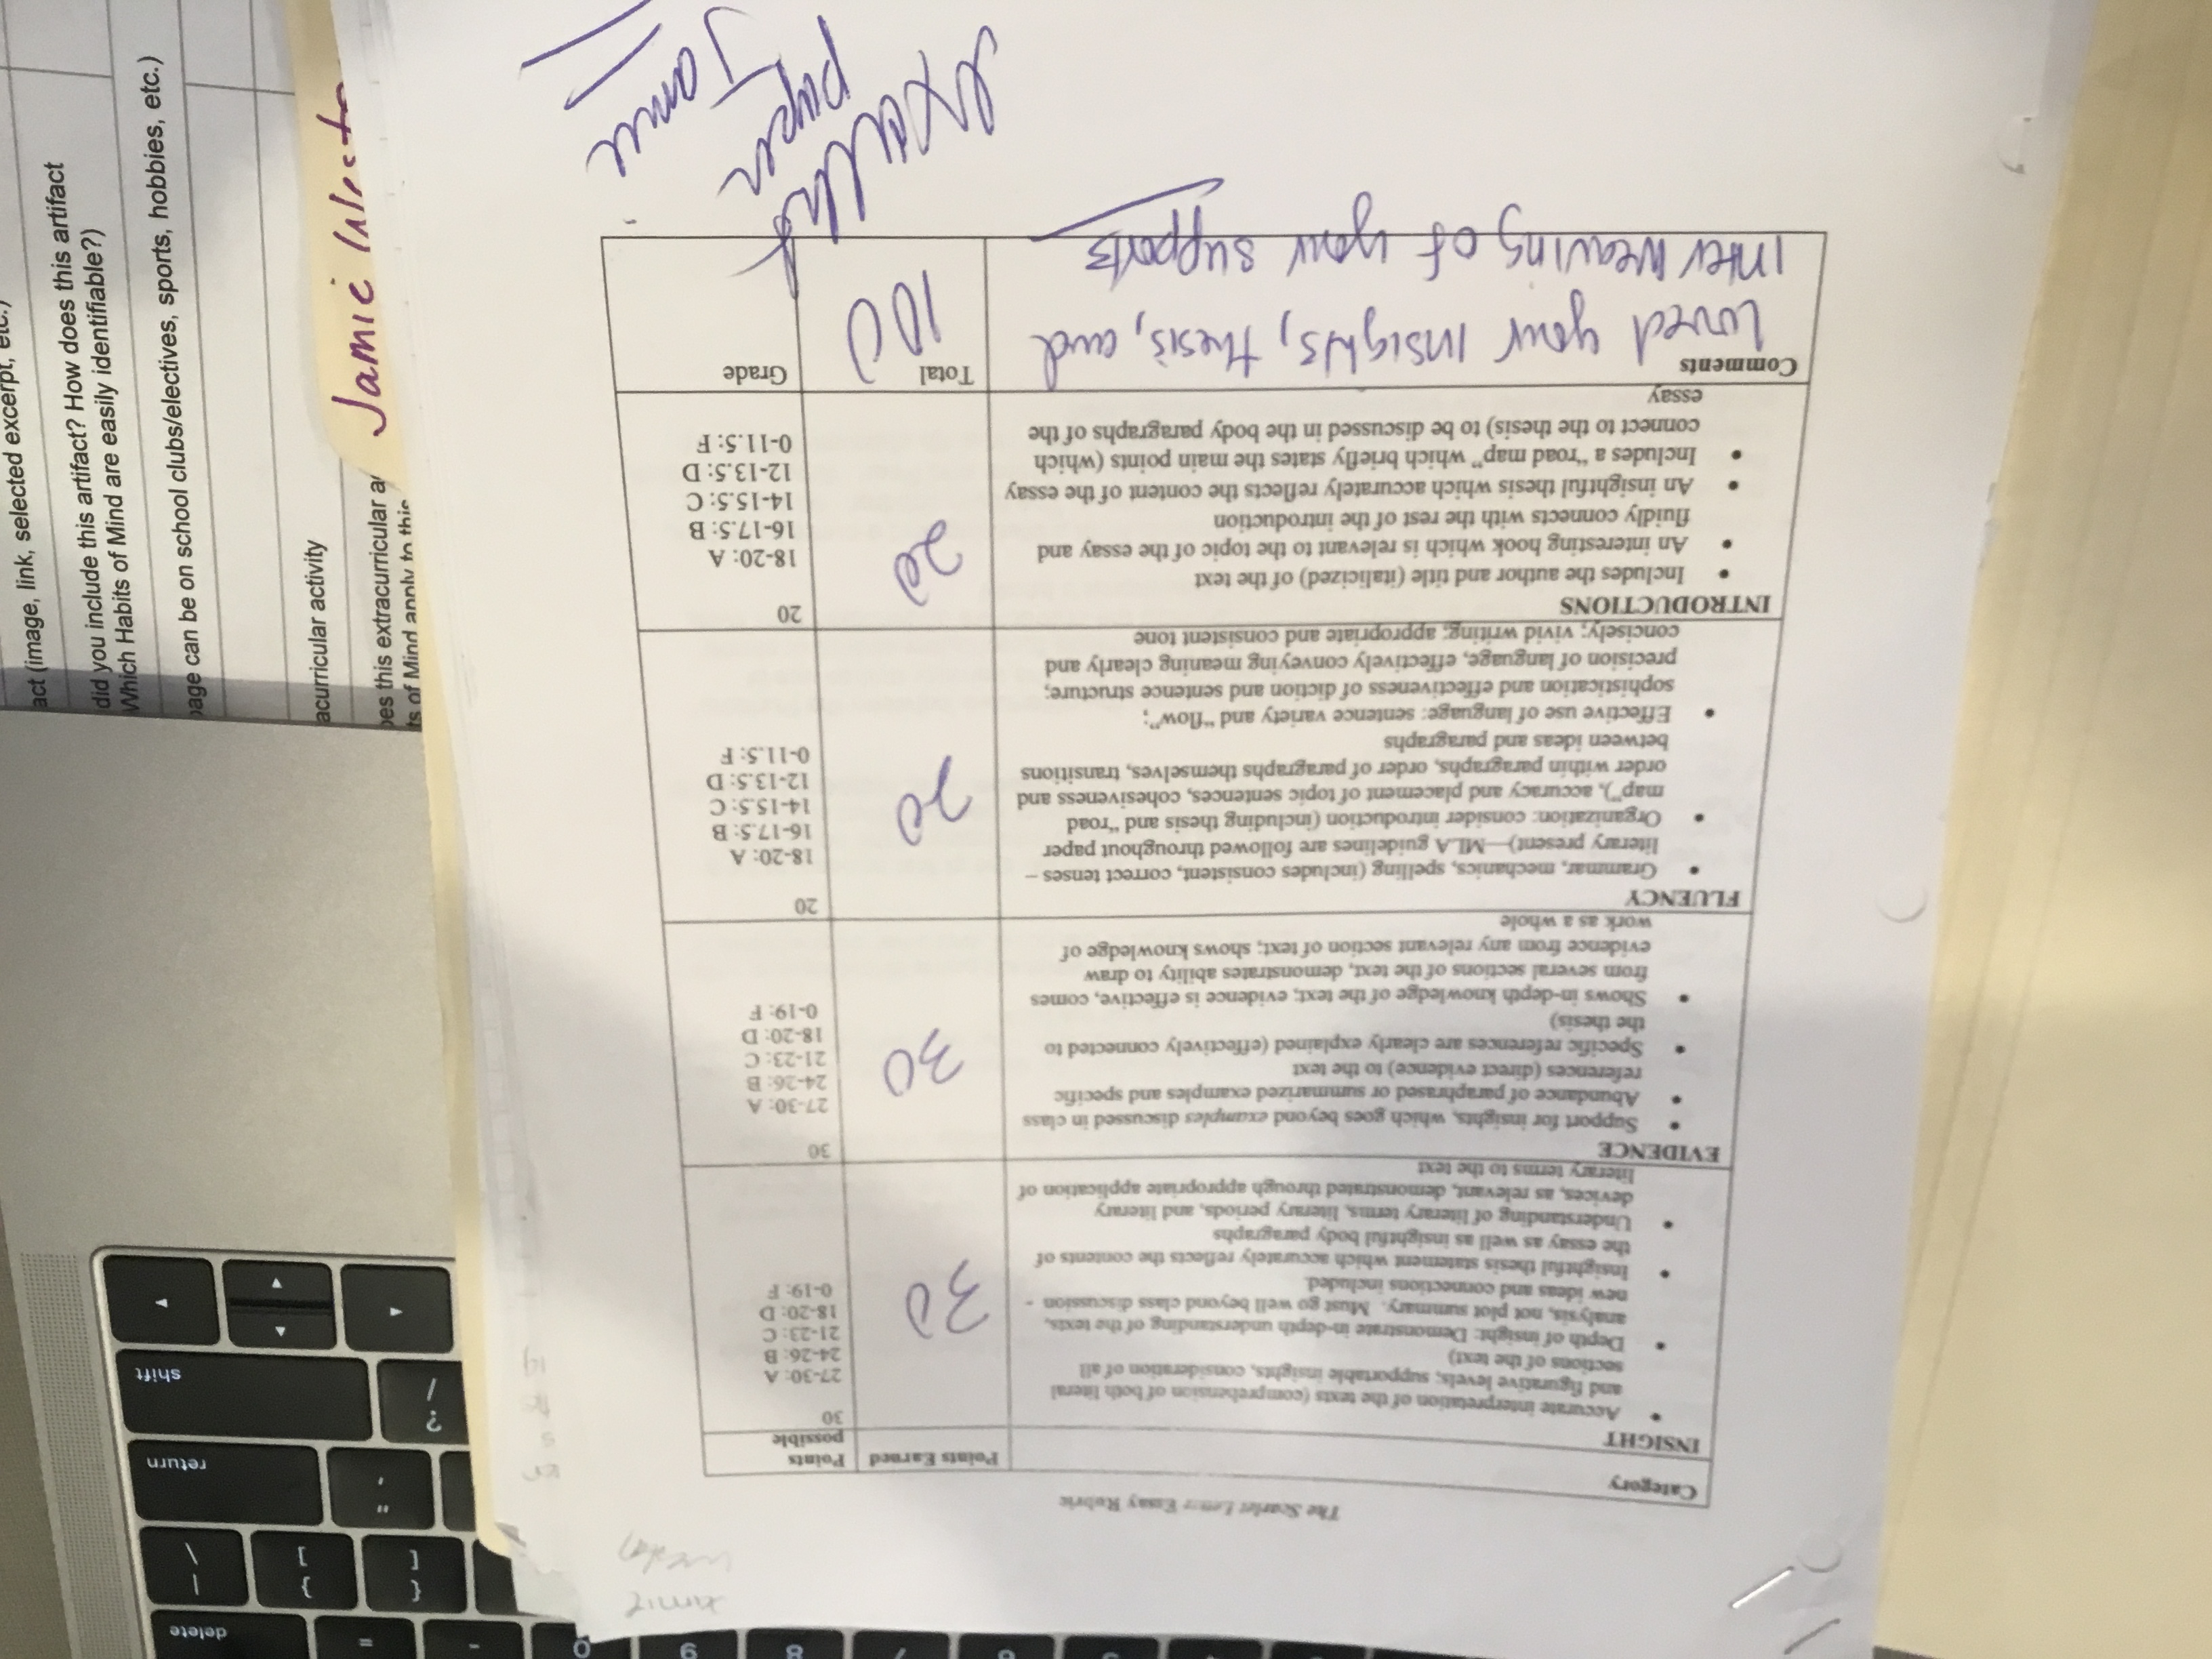 Jamie
The Scarlet Letter Essay Rubric
Category
Points Earned
Points
possible
INSIGHT
• Accurate interpretation of the texts (comprehension of both literal
and figurative levels; supportable insights, consideration of all
sections of the text)
• Depth of insight: Demonstrate in-depth understanding of the texts,
analysis, not plot summary. Must go well beyond class discussion -
new ideas and connections included.
• Insightful thesis statement which accurately reflects the contents of
the essay as well as insightful body paragraphs
• Understanding of literary terms, literary periods, and literary
devices, as relevant, demonstrated through appropriate application of
literary terms to the text
30
30
27-30: A
24-26: B
21-23: C
18-20: D
0-19: F
EVIDENCE
• Support for insights, which goes beyond examples discussed in class
• Abundance of paraphrased or summarized examples and specific
references (direct evidence) to the text
• Specific references are clearly explained (effectively connected to
the thesis)
• Shows in-depth knowledge of the text; evidence is effective, comes
from several sections of the text, demonstrates ability to draw
evidence from any relevant section of text; shows knowledge of
work as a whole
30
30
27-30: A
24-26: B
21-23: C
18-20: D
0-19: F
FLUENCY
• Grammar, mechanics, spelling (includes consistent, correct tenses –
literary present)—MLA guidelines are followed throughout paper
• Organization: consider introduction (including thesis and “road
map”), accuracy and placement of topic sentences, cohesiveness and
order within paragraphs, order of paragraphs themselves, transitions
between ideas and paragraphs
• Effective use of language: sentence variety and “flow”;
sophistication and effectiveness of diction and sentence structure;
precision of language, effectively conveying meaning clearly and
concisely; vivid writing; appropriate and consistent tone
20
20
18-20: A
16-17.5: B
14-15.5: C
12-13.5: D
0-11.5: F
INTRODUCTIONS
• Includes the author and title (italicized) of the text
• An interesting hook which is relevant to the topic of the essay and
fluidly connects with the rest of the introduction
• An insightful thesis which accurately reflects the content of the essay
• Includes a “road map” which briefly states the main points (which
connect to the thesis) to be discussed in the body paragraphs of the
essay
20
20
18-20: A
16-17.5: B
14-15.5: C
12-13.5: D
0-11.5: F
Comments
Loved your insights, thesis, and
interweaving of your supports
Total
100
Grade
excellent
paper
Jamie
8
9
0
-
=
delete
{
[
}
]
|
\
"
'
return
?
/
shift
Jamie
act (image, link, selected excerpt, etc.)
did you include this artifact? How does this artifact
Which Habits of Mind are easily identifiable?)
page can be on school clubs/electives, sports, hobbies, etc.)
acurricular activity
oes this extracurricular
ts of Mind apply to this